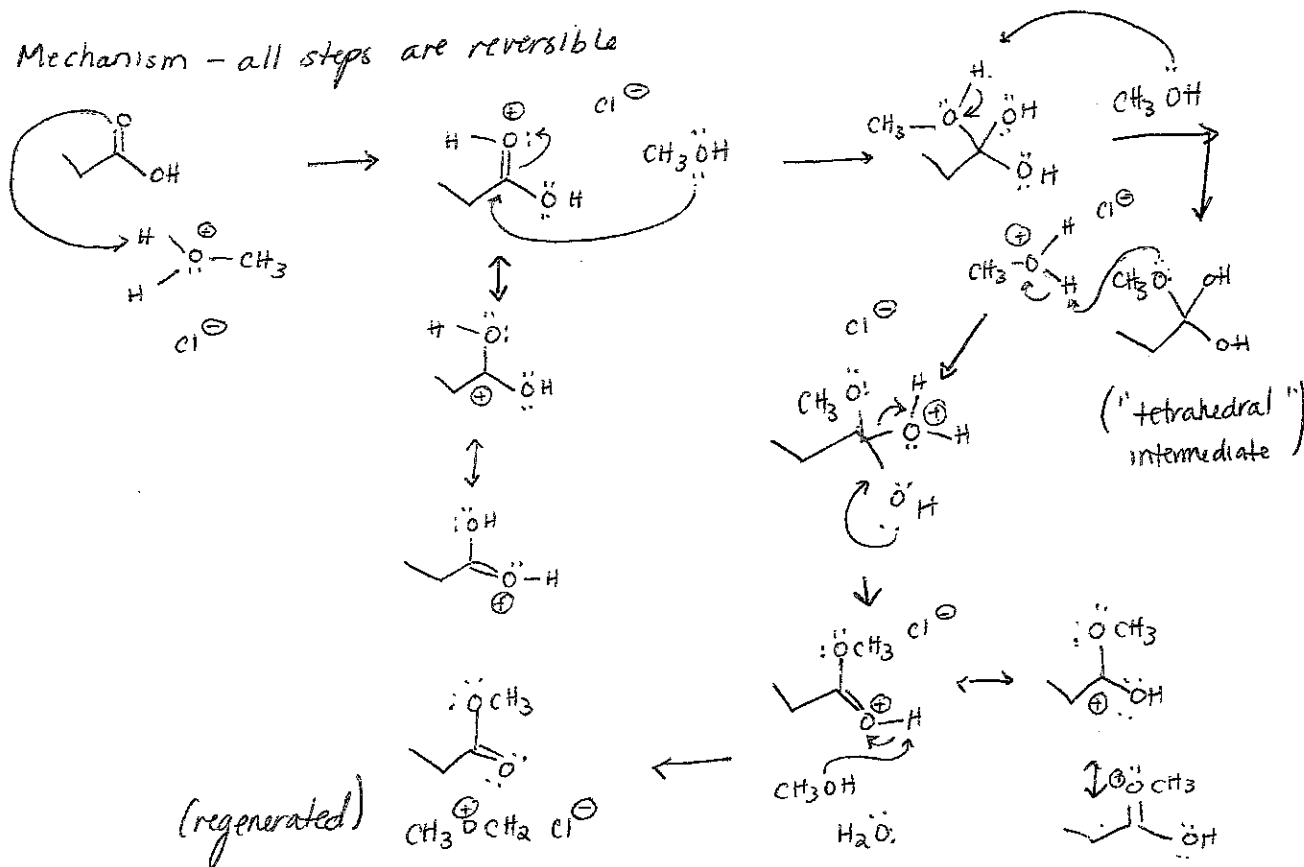 Mechanism – all steps are reversible
O
OH
H O⊕ CH3
H
Cl⊖
⊕
H O:
Cl⊖
CH3ÖH
ÖH
H
Ö:
⊕
ÖH
:ÖH
Ö–H
⊕
H
CH3 Ö ÖH
ÖH
CH3ÖH
⊕ H Cl⊖
CH3–O
H
CH3Ö: OH
OH
("tetrahedral"
intermediate)
Cl⊖
CH3 Ö: H
O⊕ H
Ö H
:ÖCH3 Cl⊖
⊕
O–H
CH3OH
H2Ö:
:ÖCH3
⊕ ÖH
⊕ÖCH3
ÖH
:ÖCH3
Ö
(regenerated) CH3⊕OCH2 Cl⊖